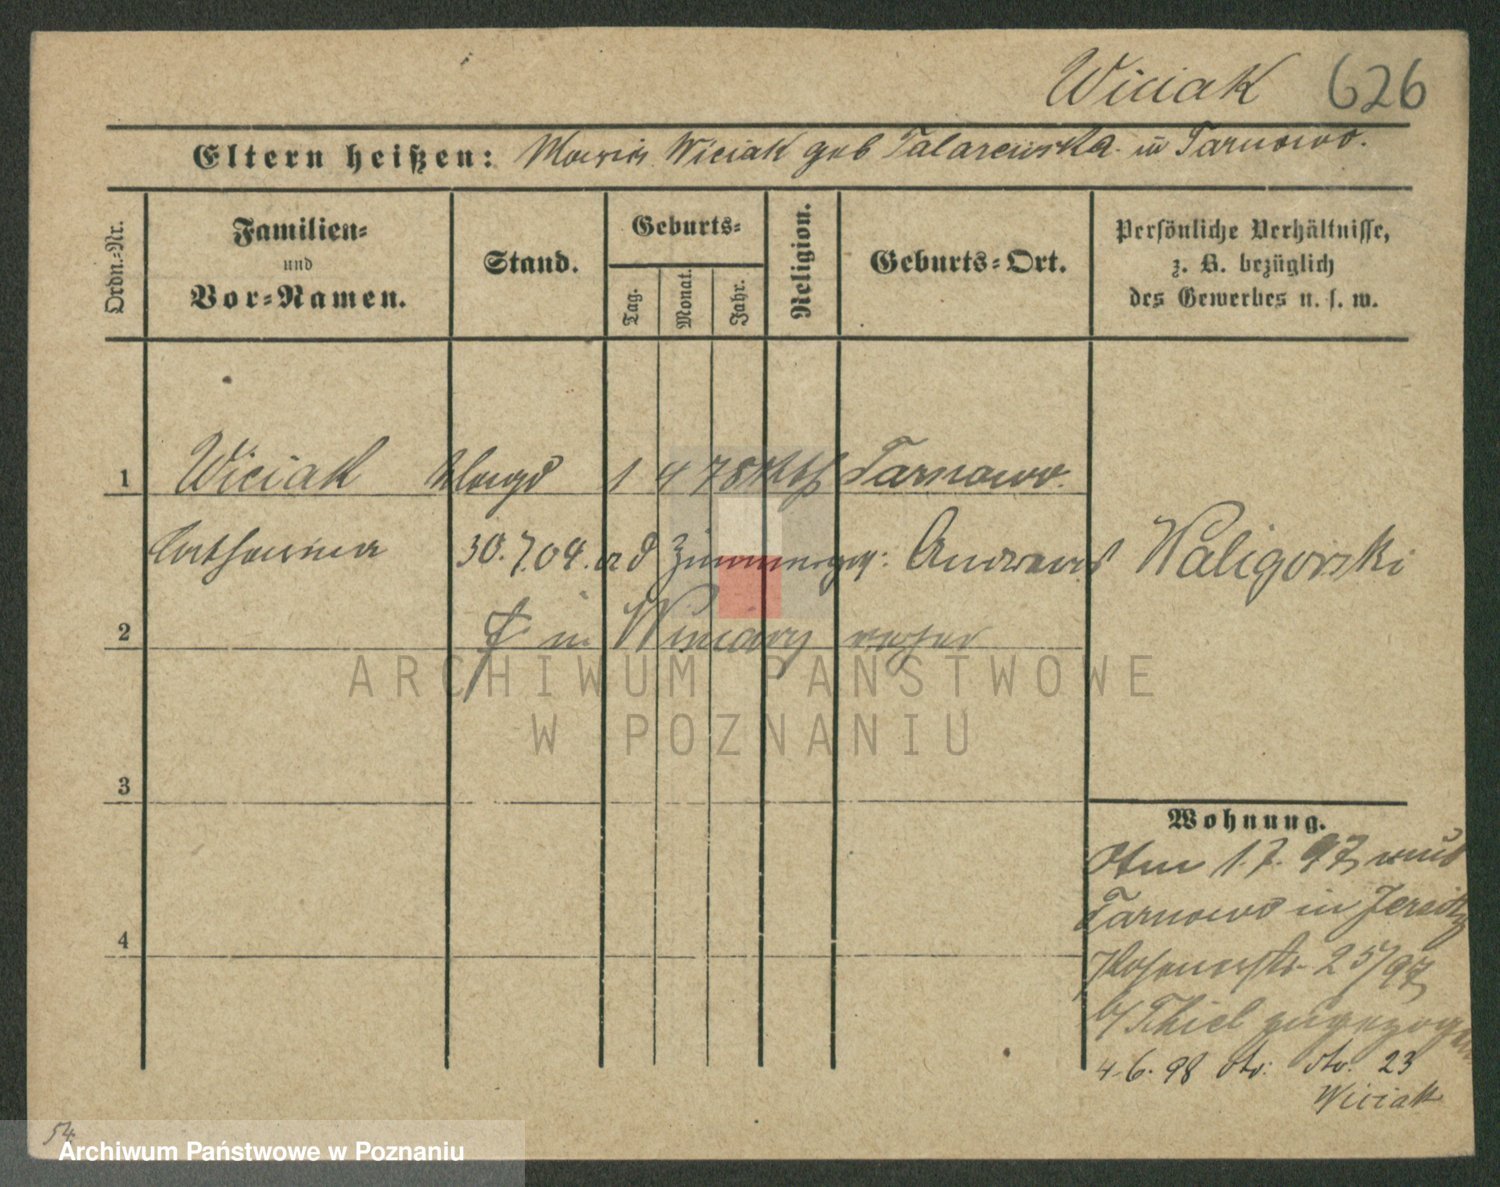 Wiciak 626
Eltern heißen: Maria Wiciak geb Talarewska in Tarnowo.
Ordn.-Nr.
Familien-
und
Vor-Namen.
Stand.
Geburts-
Tag.
Monat.
Jahr.
Religion.
Geburts-Ort.
Persönliche Verhältnisse,
z. B. bezüglich
des Gewerbes u. s. w.
1 Wiciak Magd 1 4 78 Kth Tarnowo.
Catharina 30.7.04. ad Zimmerges: Andreas Waligorski
2 in Winiary
3
Wohnung.
Am 1.7.97 aus
Tarnowo in Jersitz
4
Posenerstr. 25/97
b/ Thiel zugezogen
4.6.98 dto: dto: 23
Wiciak
54
ARCHIWUM PAŃSTWOWE
W POZNANIU
Archiwum Państwowe w Poznaniu